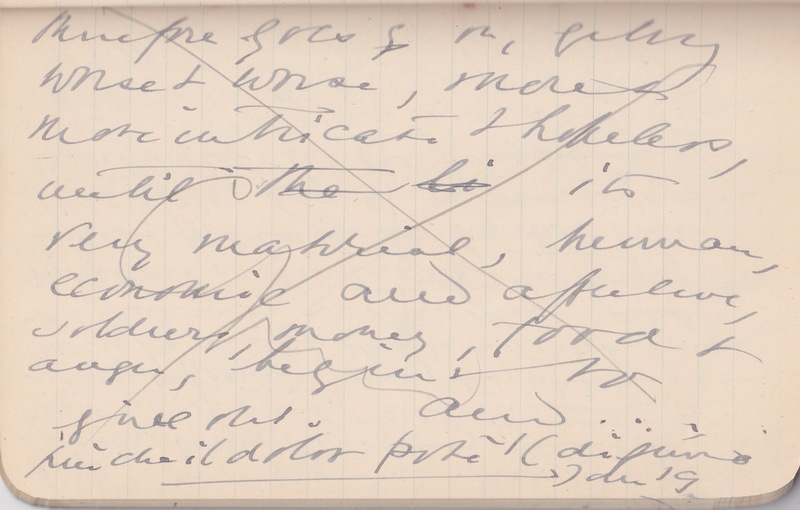 goes on, getting
worse & worse, more &
more intricate & hopeless,
until the its
very material, human,
economic and affective,
soldiers, money, food &
anger, begins to
give out. and ...
più che il dolor poté (digiuno
)